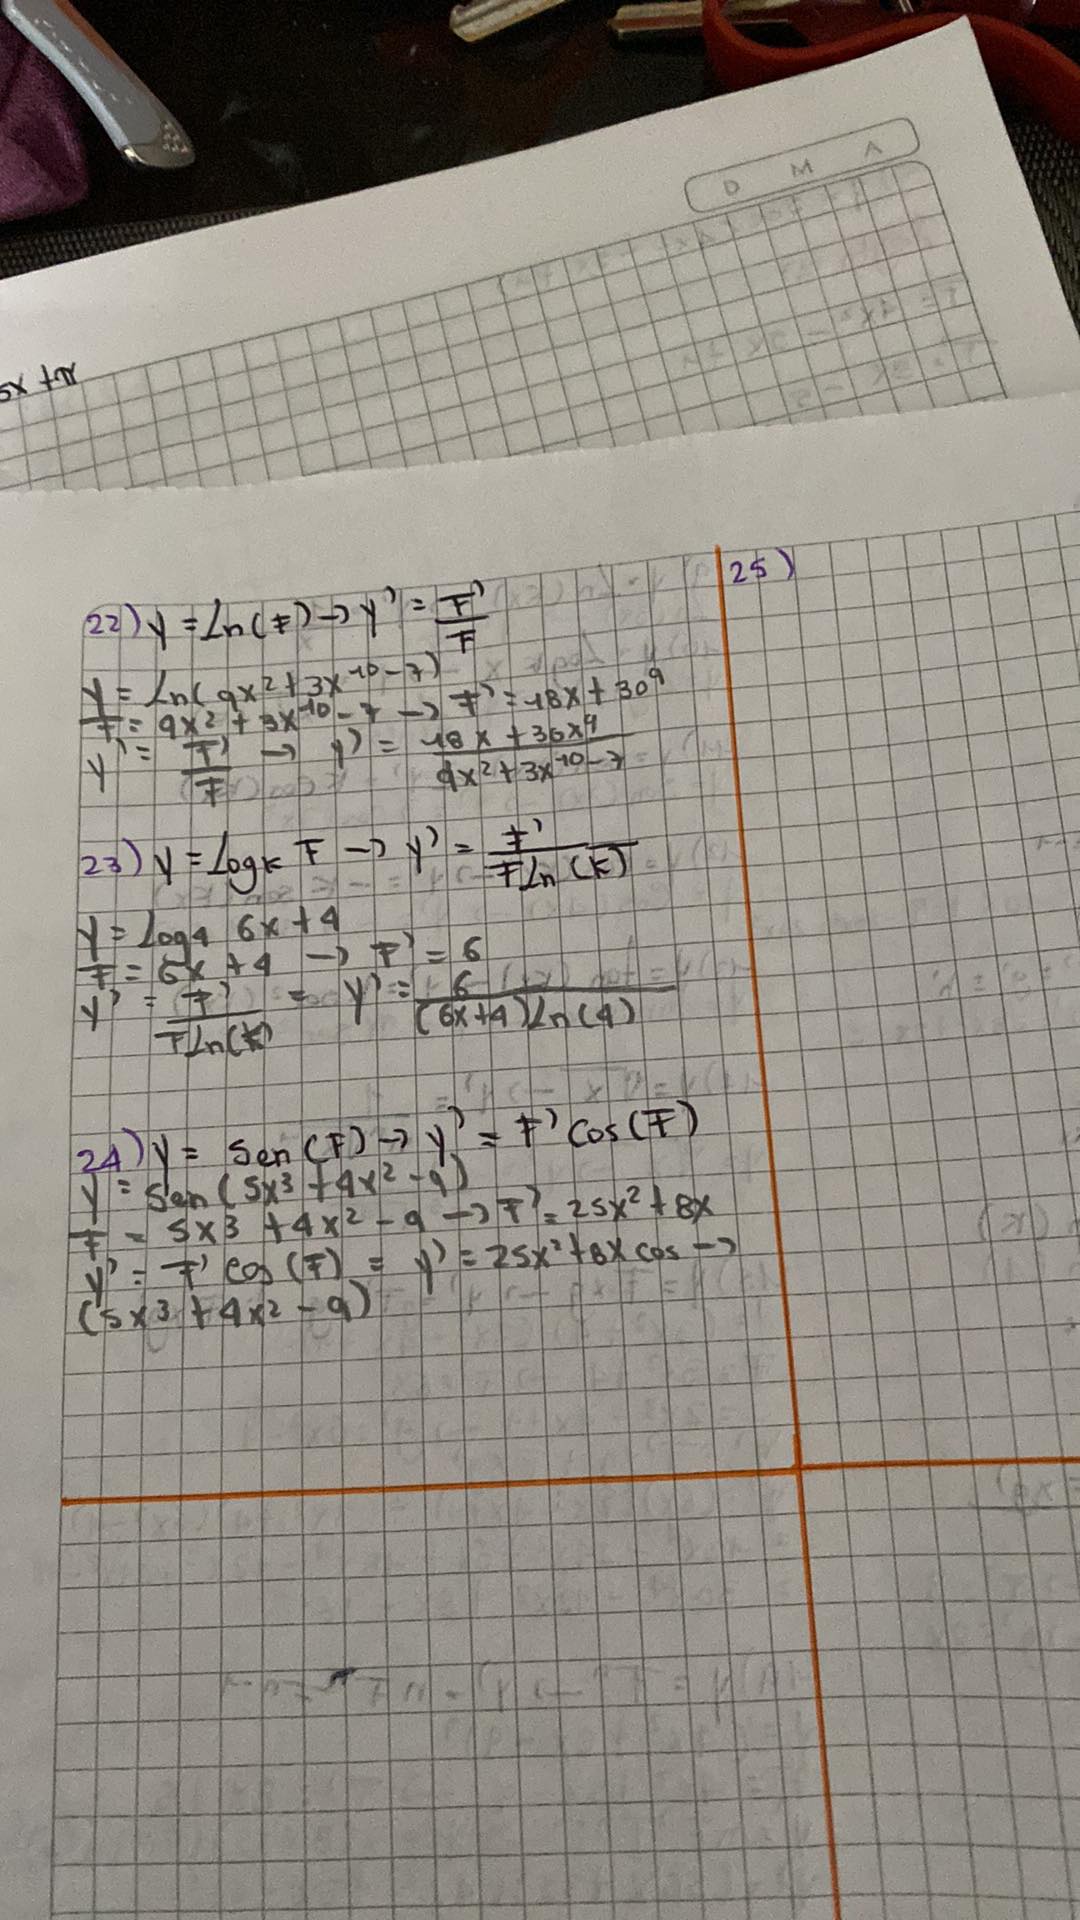 D M A
5x + π
22) y = Ln(F) → y' = F'/F
y = Ln(9x² + 3x¹⁰ - 7)
F = 9x² + 3x¹⁰ - 7 → F' = 18x + 30⁹
y' = F'/F → y' = 18x + 30x⁹/9x² + 3x¹⁰ - 7
23) y = Logk F → y' = F'/F Ln(k)
y = Log4 6x + 4
F = 6x + 4 → F' = 6
y' = F'/F Ln(k) = y' = 6/(6x+4) Ln(4)
24) y = Sen(F) → y' = F' Cos(F)
y = Sen(5x³ + 4x² - 9)
F = 5x3 + 4x² - 9 → F' = 25x² + 8x
y' = F' cos(F) = y' = 25x² + 8x cos →
(5x³ + 4x² - 9)
25)